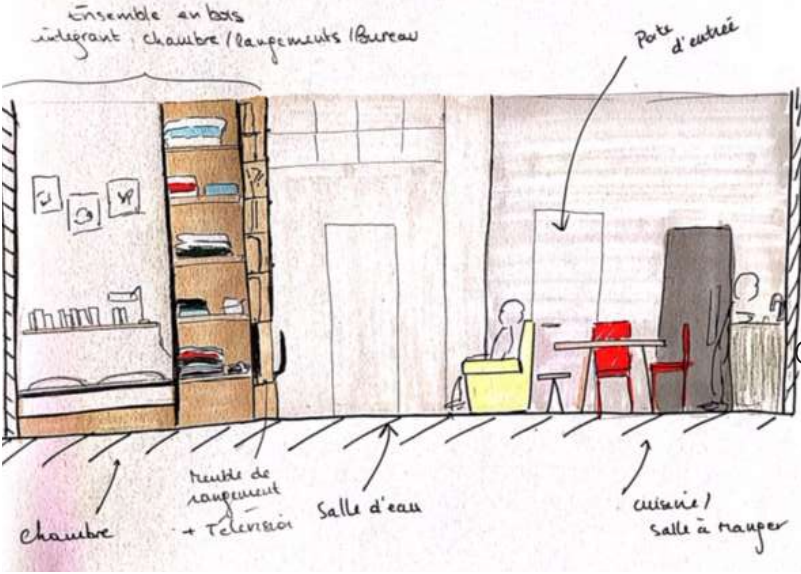 Ensemble en bois
intégrant : chambre / rangements / Bureau
Porte
d'entrée
chambre
meuble de
rangement
+ Télévision
Salle d'eau
cuisine /
salle à manger